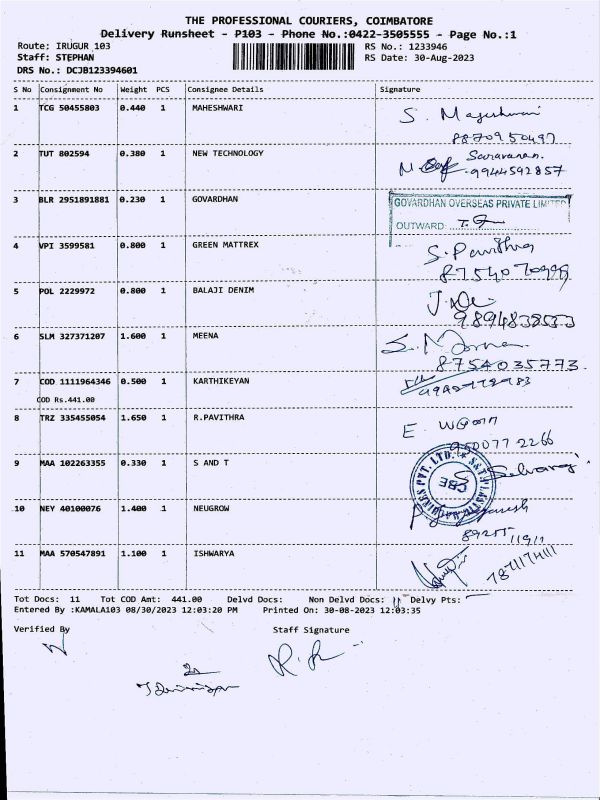 THE PROFESSIONAL COURIERS, COIMBATORE
Delivery Runsheet - P103 - Phone No.:0422-3505555 - Page No.:1
Route: IRUGUR 103 RS No.: 1233946
Staff: STEPHAN RS Date: 30-Aug-2023
DRS No.: DCJB123394601
S No Consignment No Weight PCS Consignee Details Signature
1 TCG 50455803 0.440 1 MAHESHWARI S.
8870950497
2 TUT 802594 0.380 1 NEW TECHNOLOGY Saravanan.
9944592857
3 BLR 2951891881 0.230 1 GOVARDHAN GOVARDHAN OVERSEAS PRIVATE LIMITED
OUTWARD:
4 VPI 3599581 0.800 1 GREEN MATTREX S. Pavithra
5 POL 2229972 0.800 1 BALAJI DENIM
6 SLM 327371207 1.600 1 MEENA
8754035773.
7 COD 1111964346 0.500 1 KARTHIKEYAN
COD Rs.441.00
8 TRZ 335455054 1.650 1 R.PAVITHRA E
950077 2266
9 MAA 102263355 0.330 1 S AND T S Selvaraj
CBE
10 NEY 40100076 1.400 1 NEUGROW
11 MAA 570547891 1.100 1 ISHWARYA
Tot Docs: 11 Tot COD Amt: 441.00 Delvd Docs: Non Delvd Docs: Delvy Pts:
Entered By :KAMALA103 08/30/2023 12:03:20 PM Printed On: 30-08-2023 12:03:35
Verified By Staff Signature